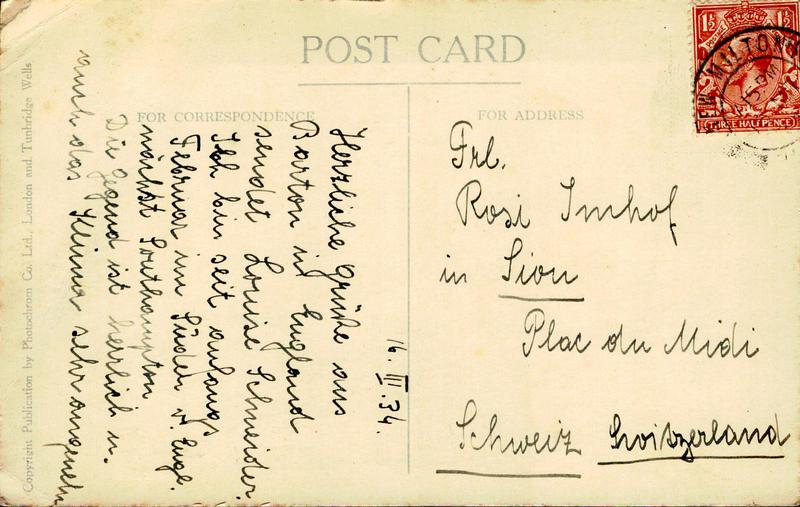 POST CARD
FOR CORRESPONDENCE
FOR ADDRESS
1½ 1½
THREE HALF PENCE
MILTON
16. III. 34.
Herzliche Grüße aus
Barton in England
sendet Louise Schmeister.
Ich bin seit anfangs
Februar im Süden v. Engl.
nächst Southampton
Die Gegend ist herrlich u.
auch das Klima sehr angenehm
Frl.
Rosi Imhof
in Sion
Plac du Midi
Schweiz Switzerland
Copyright Publication by Photochrom Co. Ltd., London and Tunbridge Wells